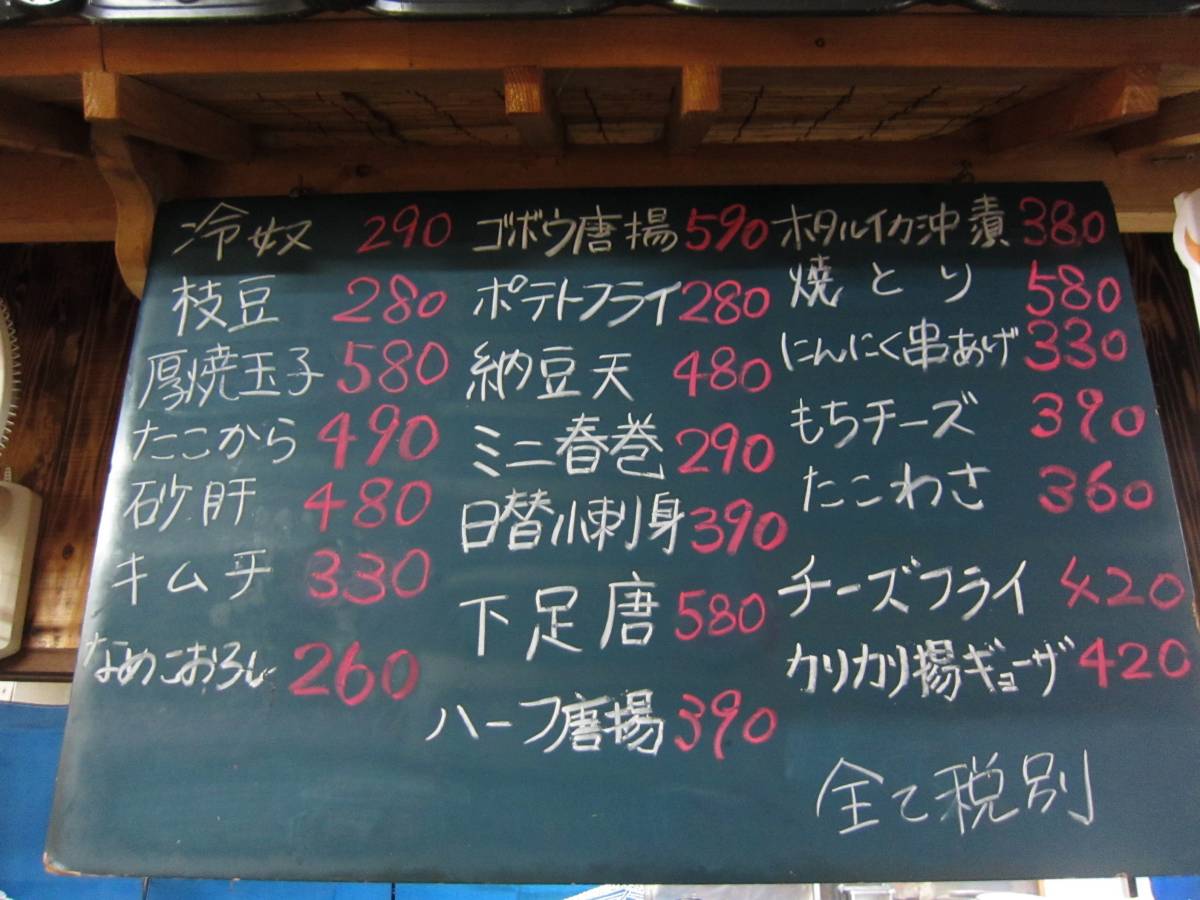 冷奴 290
枝豆 280
厚焼玉子 580
たこから 490
砂肝 480
キムチ 330
なめこおろし 260
ゴボウ唐揚 590
ポテトフライ 280
納豆天 480
ミニ春巻 290
日替小刺身 390
下足唐 580
ハーフ唐揚 390
ホタルイカ沖漬 380
焼とり 580
にんにく串あげ 330
もちチーズ 390
たこわさ 360
チーズフライ 420
カリカリ揚ギョーザ 420
全て税別